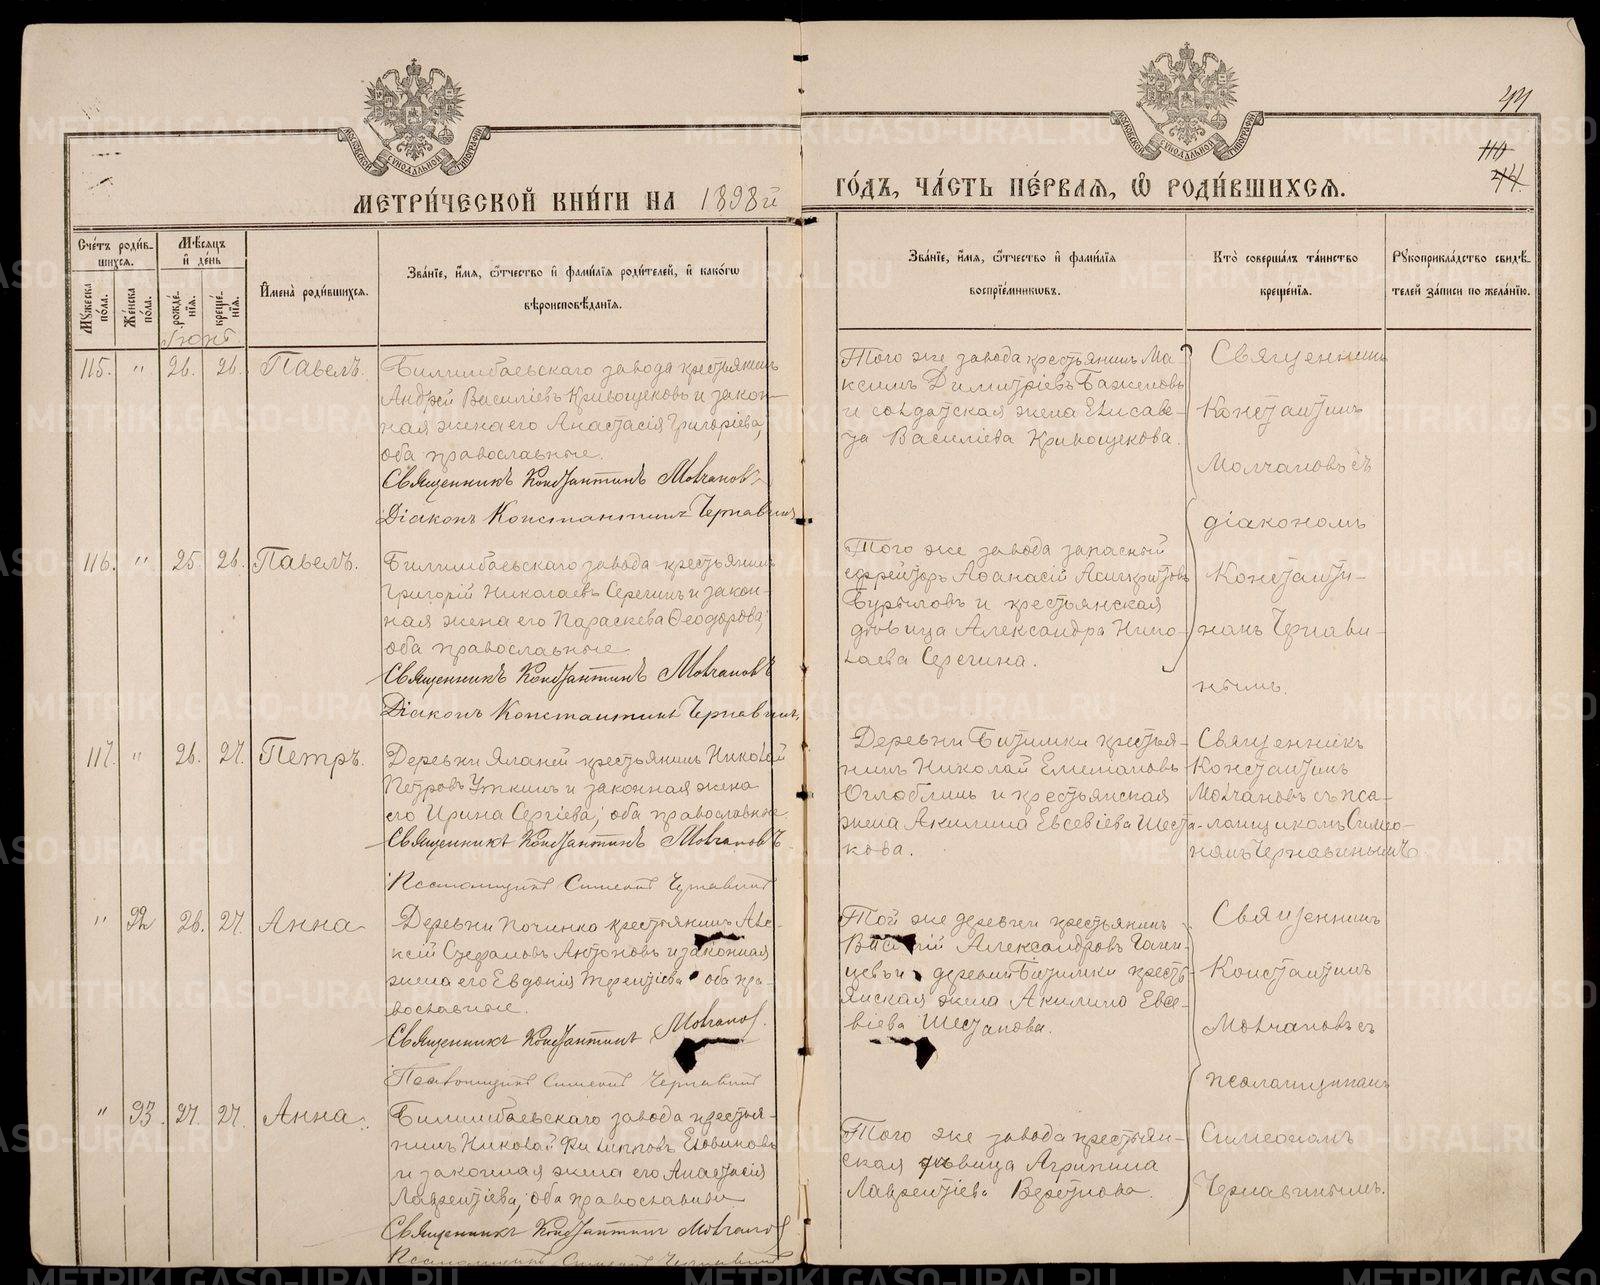 44
110
44
МОСКОВСКОЙ СѴНОДАЛЬНОЙ ТИПОГРАФІИ
МОСКОВСКОЙ СѴНОДАЛЬНОЙ ТИПОГРАФІИ
МЕТРИ́ЧЕСКОЙ КНИ́ГИ НА 1898й
ГО́ДЪ, ЧА́СТЬ ПЕ́РВАѦ, Ѿ РОДИ́ВШИХСѦ.
Сче́тъ роди́в-
шихсѧ.
Мꙋжеска по́ла.
Же́нска по́ла.
Мѣ́сѧцъ и҆ де́нь
рожде́-нїѧ.
креще́-нїѧ.
И҆мена̀ роди́вшихсѧ.
Зва́нїе, и҆́мѧ, ѻ҆́тчество и҆ фами́лїѧ роди́телей, и҆ како́гѡ
вѣроисповѣ́данїѧ.
Зва́нїе, и҆́мѧ, ѻ҆́тчество и҆ фами́лїѧ
воспрїе́мникѡвъ.
Кто̀ соверша́лъ та́инство
креще́нїѧ.
Рꙋкоприкла́дство свидѣ́-
телей за́писи по жела́нїю.
Іюнь
115. " 26. 26. Павелъ.
Билимбаевскаго завода крестьянинъ
Андрей Василіевъ Кривощековъ и закон-
ная жена его Анастасія Григоріева,
оба православные.
Священникъ Константинъ Молчановъ
Діаконъ Константинъ Чернавинъ
Того же завода крестьянинъ Ма-
ксимъ Димитріевъ Баженовъ
и солдатская жена Елисаве-
та Василіева Кривощекова.
Священникъ
Константинъ
Молчановъ съ
діакономъ
Константи-
номъ Чернави-
нымъ.
116. " 25. 26. Павелъ.
Билимбаевскаго завода крестьянинъ
Григорій Николаевъ Серегинъ и закон-
ная жена его Параскева Ѳеодорова,
оба православные.
Священникъ Константинъ Молчановъ
Діаконъ Константинъ Чернавинъ
Того же завода запасный
ефрейторъ Аѳанасій Асигкритовъ
Бурыловъ и крестьянская
дѣвица Александра Нико-
лаева Серегина.
117. " 26. 27. Петръ.
Деревни Яланей крестьянинъ Николай
Петровъ Уткинъ и законная жена
его Ирина Сергіева, оба православные
Священникъ Константинъ Молчановъ
Псаломщикъ Симеонъ Чернавинъ
Деревни Битимки крестья-
нинъ Николай Емеліановъ
Оглоблинъ и крестьянская
жена Акилина Евсевіева Шеста-
кова.
Священникъ
Константинъ
Молчановъ съ пса-
ломщикомъ Симео-
номъ Чернавинымъ
" 92 26. 27. Анна
Деревни Починка крестьянинъ Але-
ксій Стефановъ Антоновъ и законная
жена его Евдокія Терентіева оба пра-
вославные.
Священникъ Константинъ Молчановъ.
Псаломщикъ Симеонъ Чернавинъ
Той же деревни крестьянинъ
Василій Александровъ
и деревни Битимки кресть-
янская жена Акилина Евсе-
віева Шестакова.
Священникъ
Константинъ
Молчановъ съ
псаломщикомъ
Симеономъ
Чернавинымъ.
" 93. 27. 27. Анна.
Билимбаевскаго завода крестья-
нинъ Николай Филипповъ
и законная жена его Анастасія
Лаврентіева, оба православные
Священникъ Константинъ Молчановъ
Псаломщикъ Симеонъ Чернавинъ
Того же завода крестьян-
ская дѣвица Агрипина
Лаврентіева
METRIKI.GASO-URAL.RU